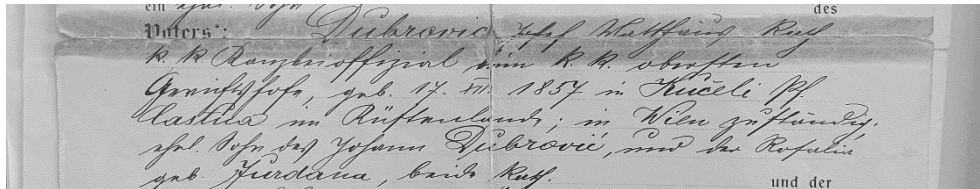 ein ehel. Sohn des
Vaters: Dubrović Josef Matthäus kath
k. k. Kanzleioffizial beim k. k. obersten
Gerichtshofe, geb. 17. XII. 1857 in Kučeli Pf.
Castua im Küstenlande; in Wien zuständig.
ehel. Sohn des Johann Dubrović, und der Rosalia
geb. Jurdana, beide kath.
und der